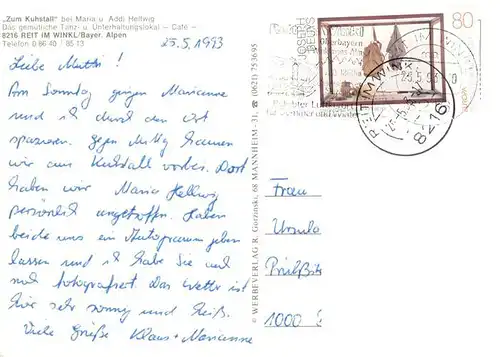 „Zum Kuhstall" bei Maria u. Addi Hellwig
Das gemütliche Tanz- u. Unterhaltungslokal – Café –
8216 REIT IM WINKL/Bayer. Alpen
Telefon 0 86 40 / 85 13
25.5.1993
Liebe Mutti!
Am Sonntag gingen Marianne
und ich durch den Ort
spazieren. Gegen Mittag kamen
wir am Kuhstall vorbei. Dort
haben wir Maria Hellwig
persönlich angetroffen. Haben
beide uns ein Autogramm geben
lassen und ich habe Sie auch
noch fotografiert. Das Wetter ist
hier sehr sonnig und heiß.
Viele Grüße Klaus + Marianne
© WERBEVERLAG R. Gorzinski, 68 MANNHEIM-31, ☎ (0621) 753695
JOSEPH
BEUYS
80
EUROPA
REIT IM WINKL
8216
Frau
Ursula
1000